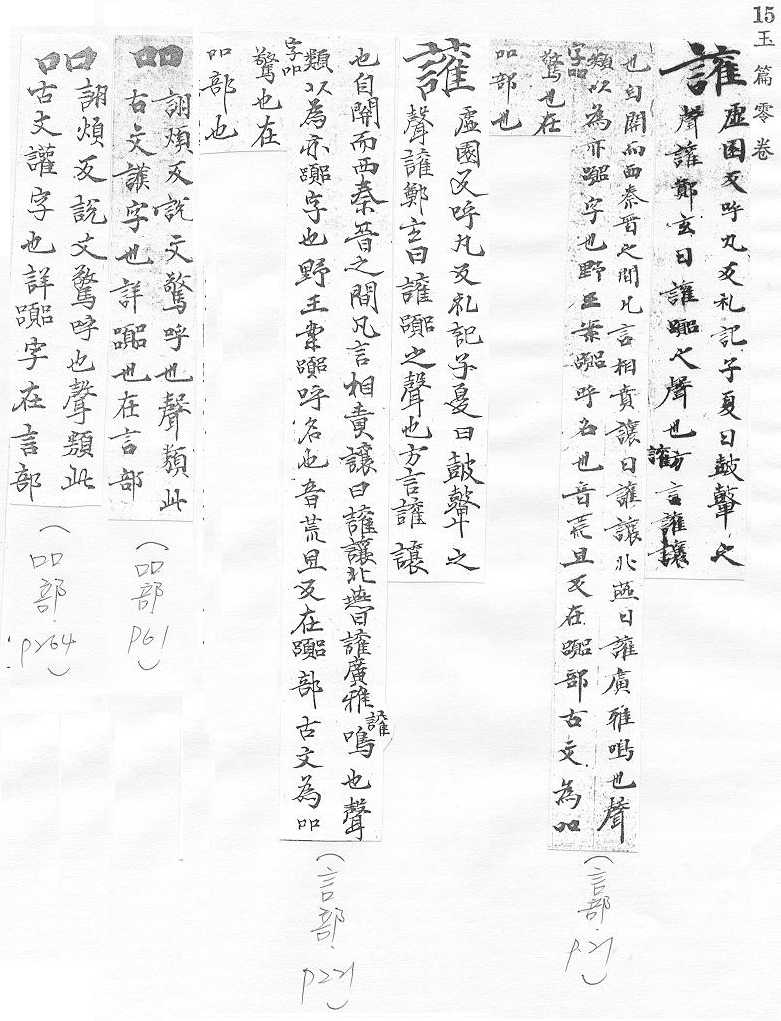 15玉篇零卷
讙
虛園反呼丸反礼記子夏曰鼓鼙之
聲讙鄭玄曰讙嚻之聲也方言讙讓
也自關而西秦晉之間凡言相責讓曰讙讓北燕曰讙廣雅鳴也聲
類以為亦嚻字也野王案嚻呼名也音荒旦反在嚻部古文為吅
字吅
驚也在
吅部也
(言部.
讙
虛園反呼丸反礼記子憂曰鼓鼙之
聲讙鄭玄曰讙嚻之聲也方言讙讓
也自關而西秦晉之間凡言相責讓曰讙讓北燕曰讙廣雅讙鳴也聲
類以為亦嚻字也野王案嚻呼名也音荒旦反在嚻部古文為吅
字吅
驚也在
吅部也
(言部.
吅
詡煩反說文驚呼也聲類此
古文讙字也詳嚻也在言部
(吅部
P61)
吅
詡煩反說文驚呼也聲類此
古文讙字也詳嚻字在言部
(吅部.
P264)